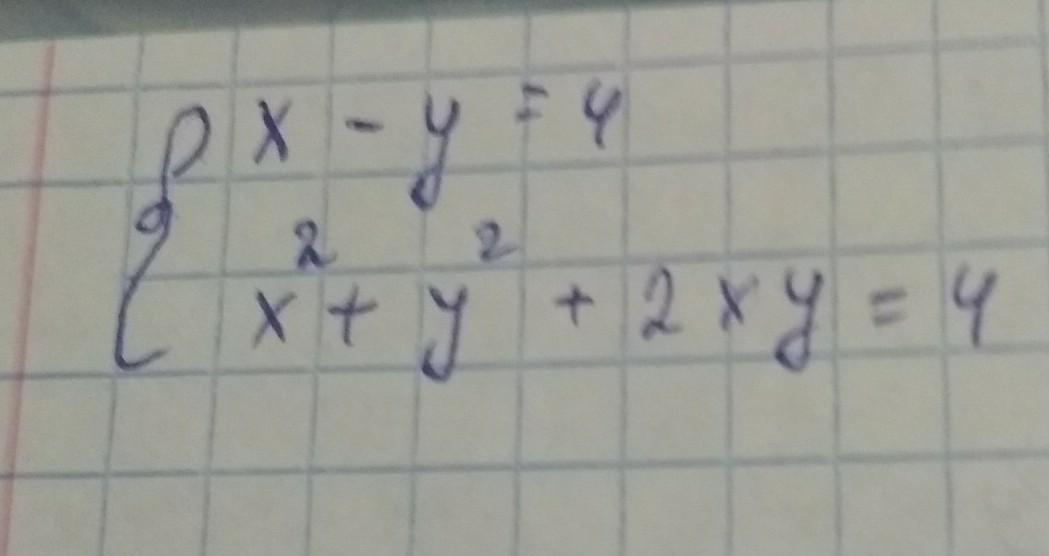 x - y = 4
x² + y² + 2xy = 4